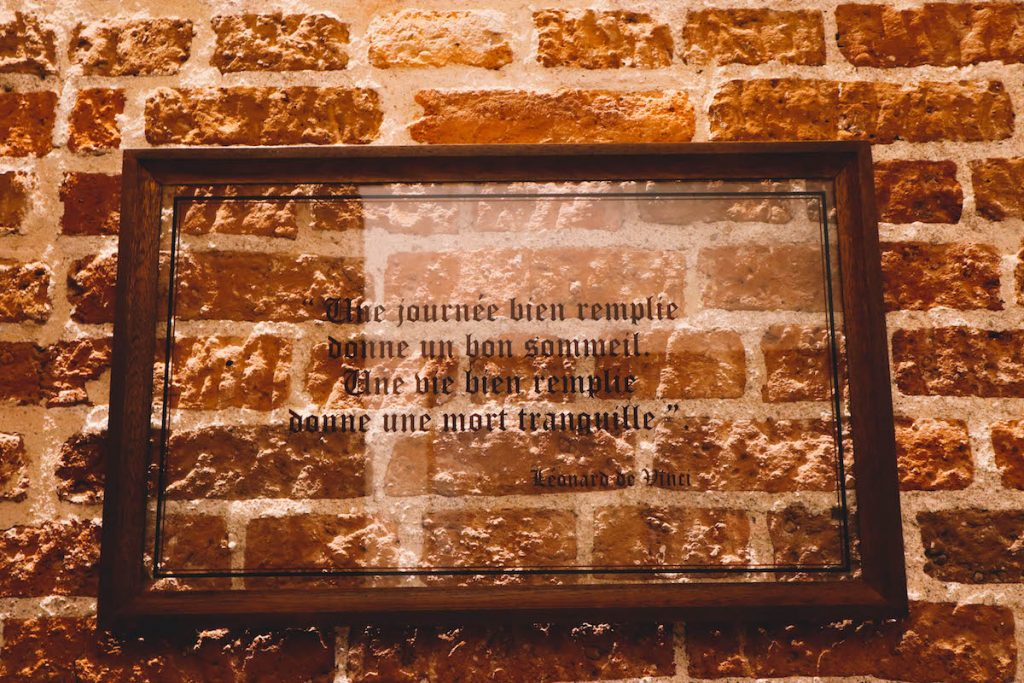 “ Une journée bien remplie
donne un bon sommeil.
Une vie bien remplie
donne une mort tranquille ”.
Léonard de Vinci